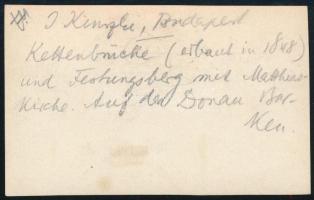 J Kinzli, Budapest
Kettenbrücke (erbaut in 1848)
und Festungsberg mit Matthäus-
Kirche. Auf der Donau Bar-
ken.